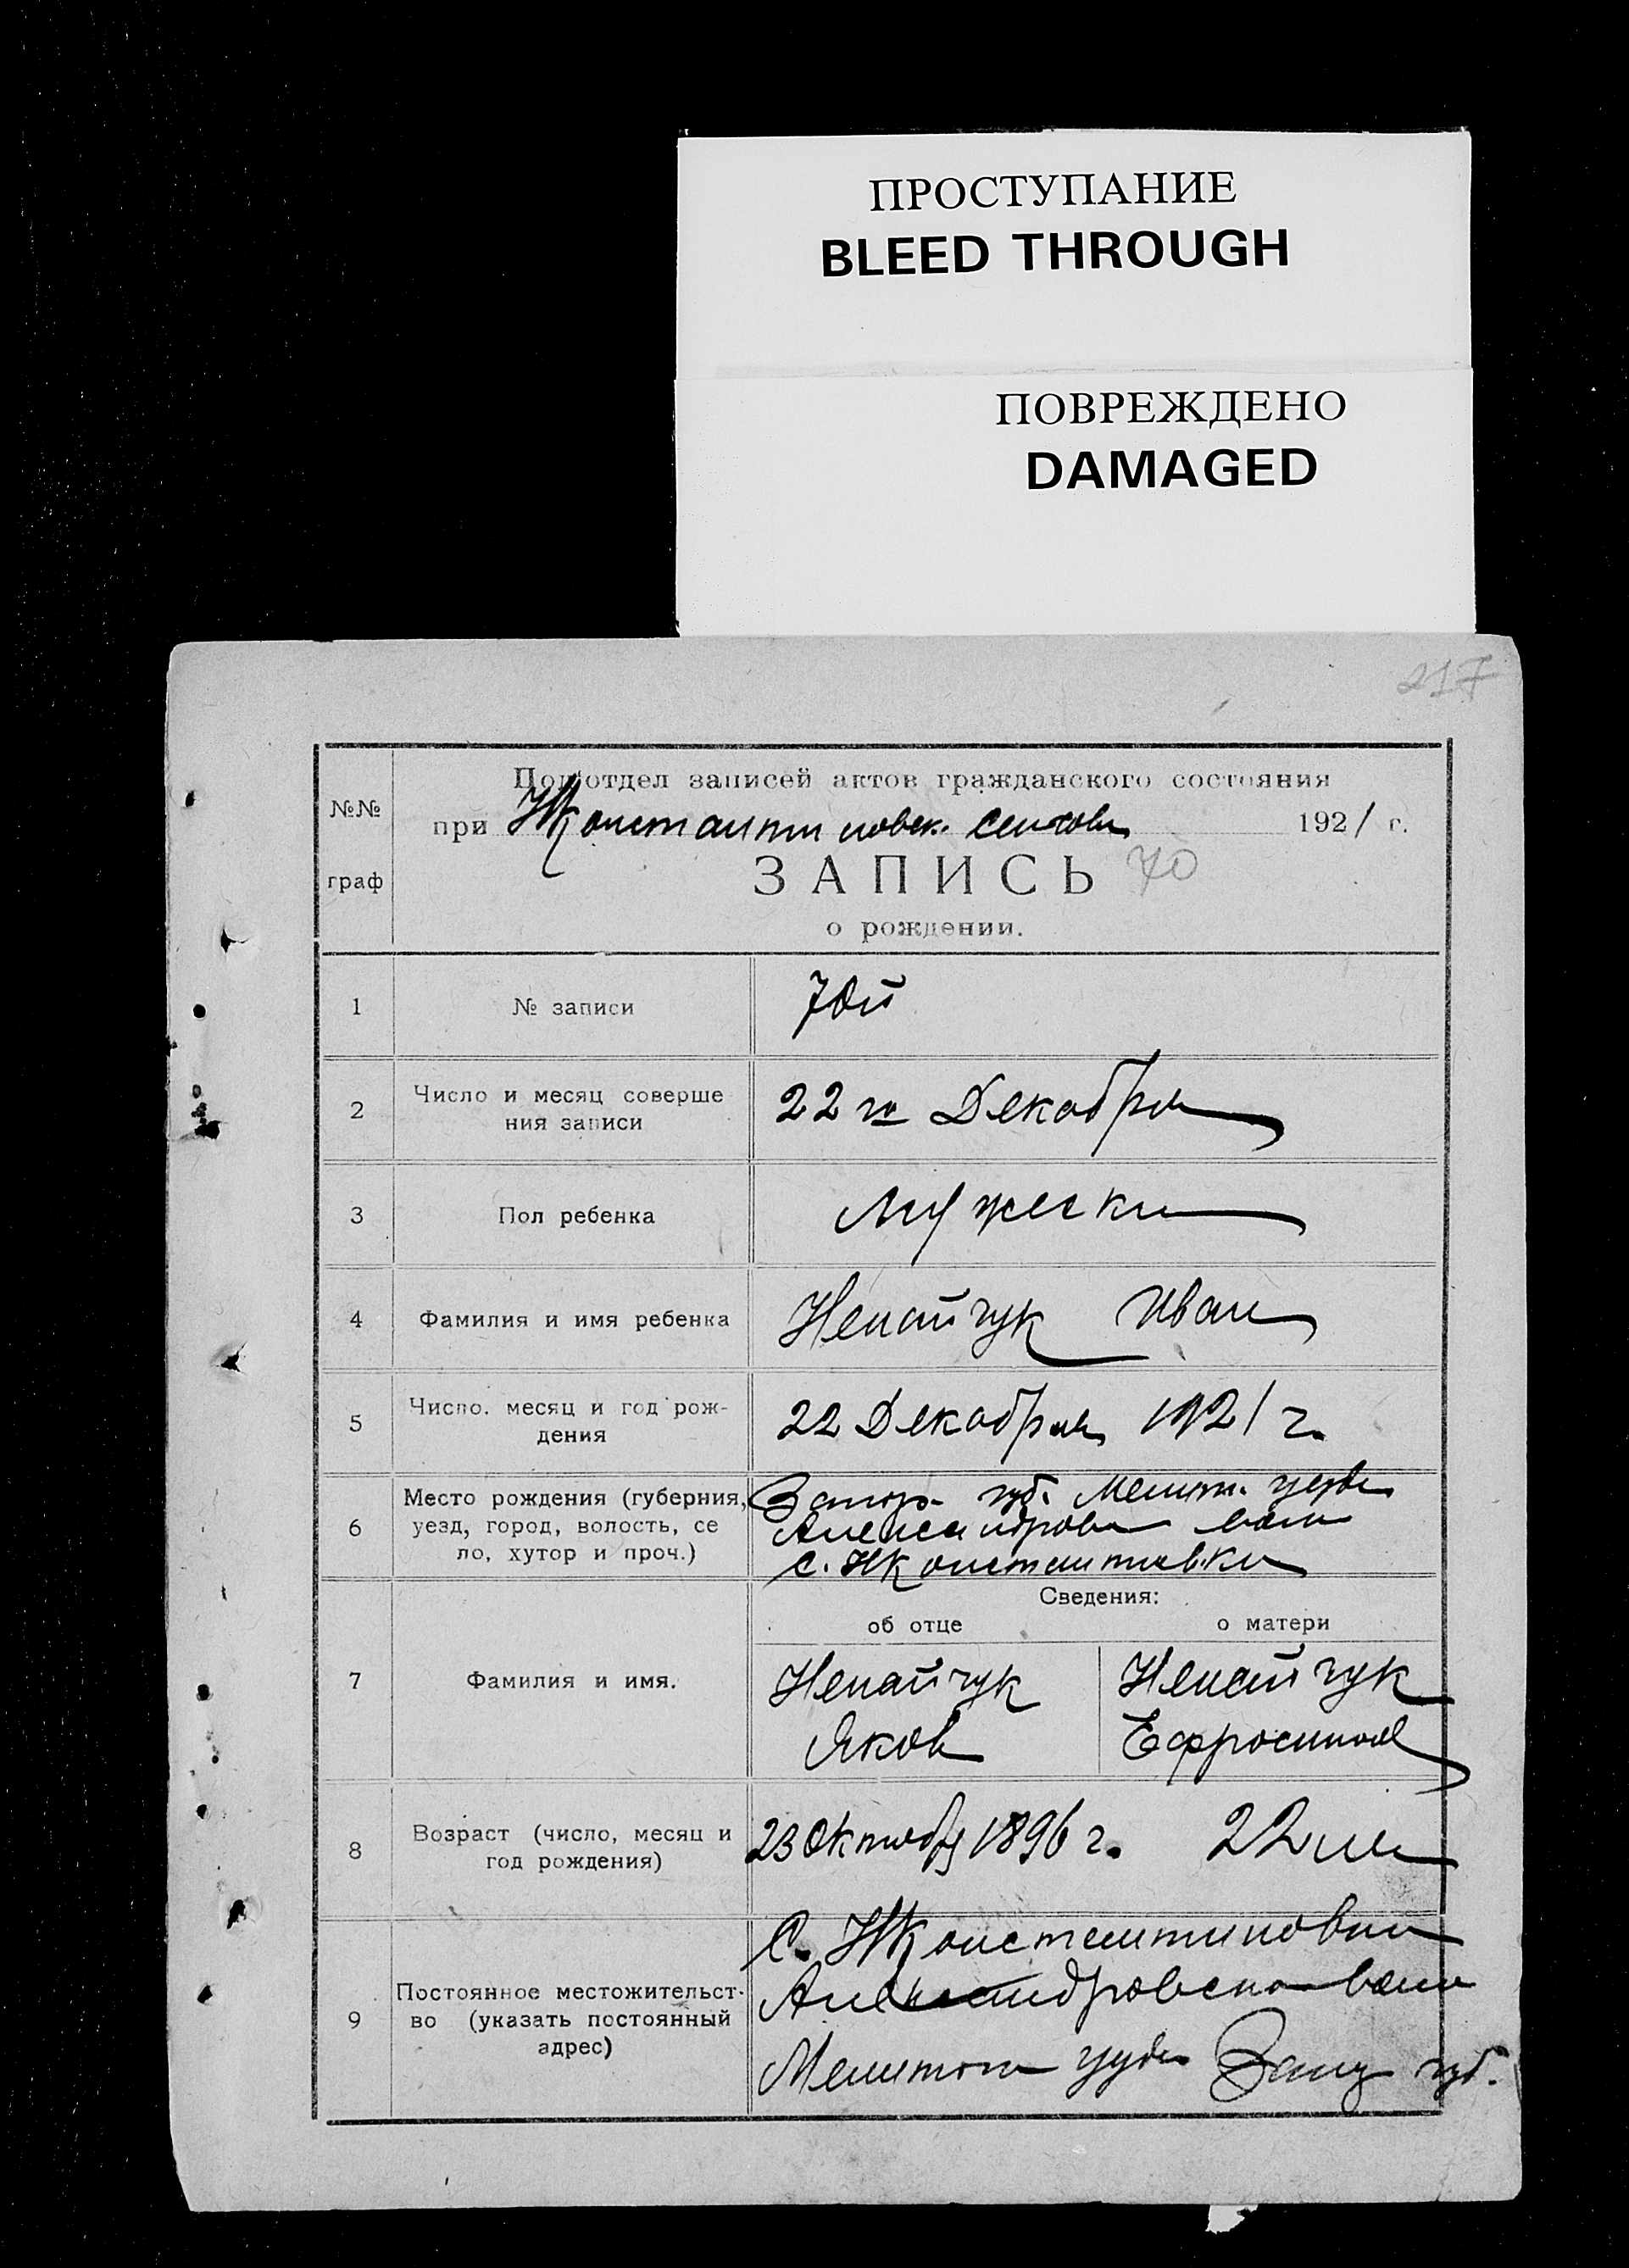 ПРОСТУПАНИЕ
BLEED THROUGH
ПОВРЕЖДЕНО
DAMAGED
217
№№
граф
Подотдел записей актов гражданского состояния
при НКонстантиновск. 1921 г.
ЗАПИСЬ 70
о рождении.
1 № записи 70й
2 Число и месяц соверше
ния записи
22го Декабря
3 Пол ребенка Мужески
4 Фамилия и имя ребенка Непайчук Иван
5 Число. месяц и год рож-
дения
22 Декабря 1921 г.
6 Место рождения (губерния,
уезд, город, волость, се
ло, хутор и проч.)
Запор. губ. Мелит. уезда
Александров вол
с. НКонстантиновки
Сведения:
об отце о матери
7 Фамилия и имя.
Непайчук Непайчук
Яков Ефросиния
8 Возраст (число, месяц и
год рождения)
23 Октября 1896 г. 22
9 Постоянное местожительст-
во (указать постоянный
адрес)
С. НКонстантиновки
Александровской вол
Мелитоп уезда Запор губ.